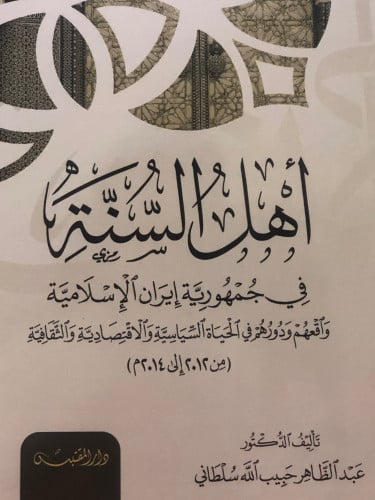 أَهْلُ السُّنَّةِ
في جُمْهُورِيَّةِ إيرَان الإِسْلَامِيَّة
وَاقِعُهُمْ وَدَوْرُهُمْ فِي الحَيَاةِ السِّيَاسِيَّةِ وَالِاقْتِصَادِيَّةِ وَالثَّقَافِيَّةِ
(مِن ٢٠١٢ إِلَى ٢٠١٤م)
تَأليفُ الدُّكْتُور
عَبْدِ الظَّاهِرِ حَبِيبِ اللَّه سُلْطَانِي
دار المقتبس